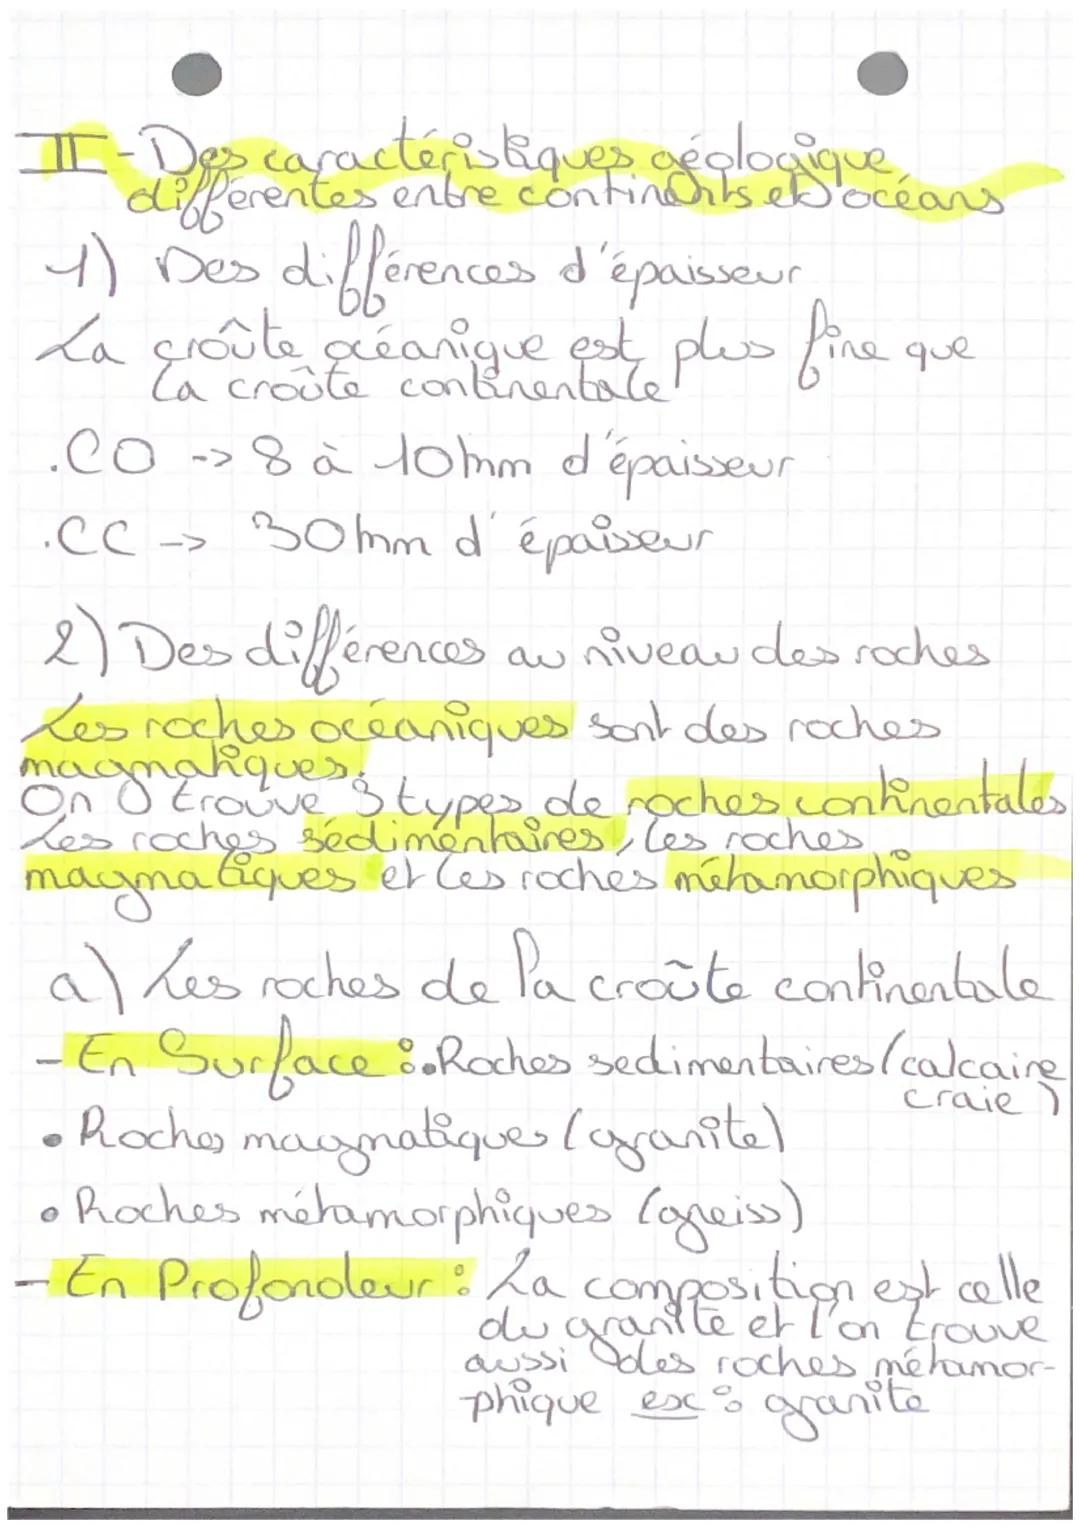 II - Des caractéristiques géologique
différentes entre continents et océans
1) Des différences d'épaisseur
La croûte océanique est plus fine que
la croûte continentale
.CO -> 8 à 10 km d'épaisseur
.CC -> 30 km d'épaisseur
2) Des différences au niveau des roches
Les roches océaniques sont des roches
magmatiques.
On trouve 3 types de roches continentales
Les roches sédimentaires, les roches
magmatiques et les roches métamorphiques
a) Les roches de la croûte continentale
- En Surface : • Roches sedimentaires (calcaire
craie)
• Roches magmatiques (granite)
• Roches métamorphiques (gneiss)
- En Profondeur : La composition est celle
du granite et l'on trouve
aussi des roches métamor-
phique ex : granite